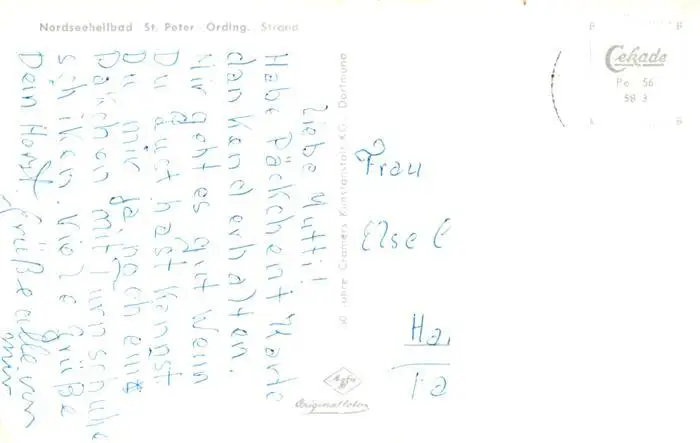 Nordseeheilbad St. Peter Ording. Strand
Cekade
Pe 56
58 3
Liebe Mutti!
Habe Päckchen t Karte
dankend erhalten.
Mir geht es gut Wenn
Du Lust hast kannst
Du mir ja noch ein
Päckchen mit Turnschuhe
schiken. Viele Grüße
Dein Horst. Grüße alle von
mir
Jahre Cramers Kunstanstalt KG. Dortmund
Frau
Else
Agfa
Originalfoto